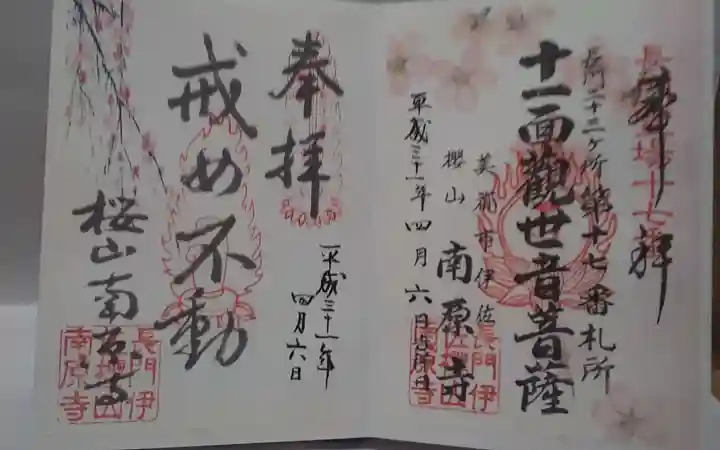 奉拝
長門三十三ケ所第十七番札所
十一面観世音菩薩
美祢市伊佐
櫻山 南原寺
平成三十一年四月六日
長門伊佐櫻山南原寺
奉拝
平成三十一年
四月六日
戒め不動
桜山南原寺
長門伊佐櫻山南原寺